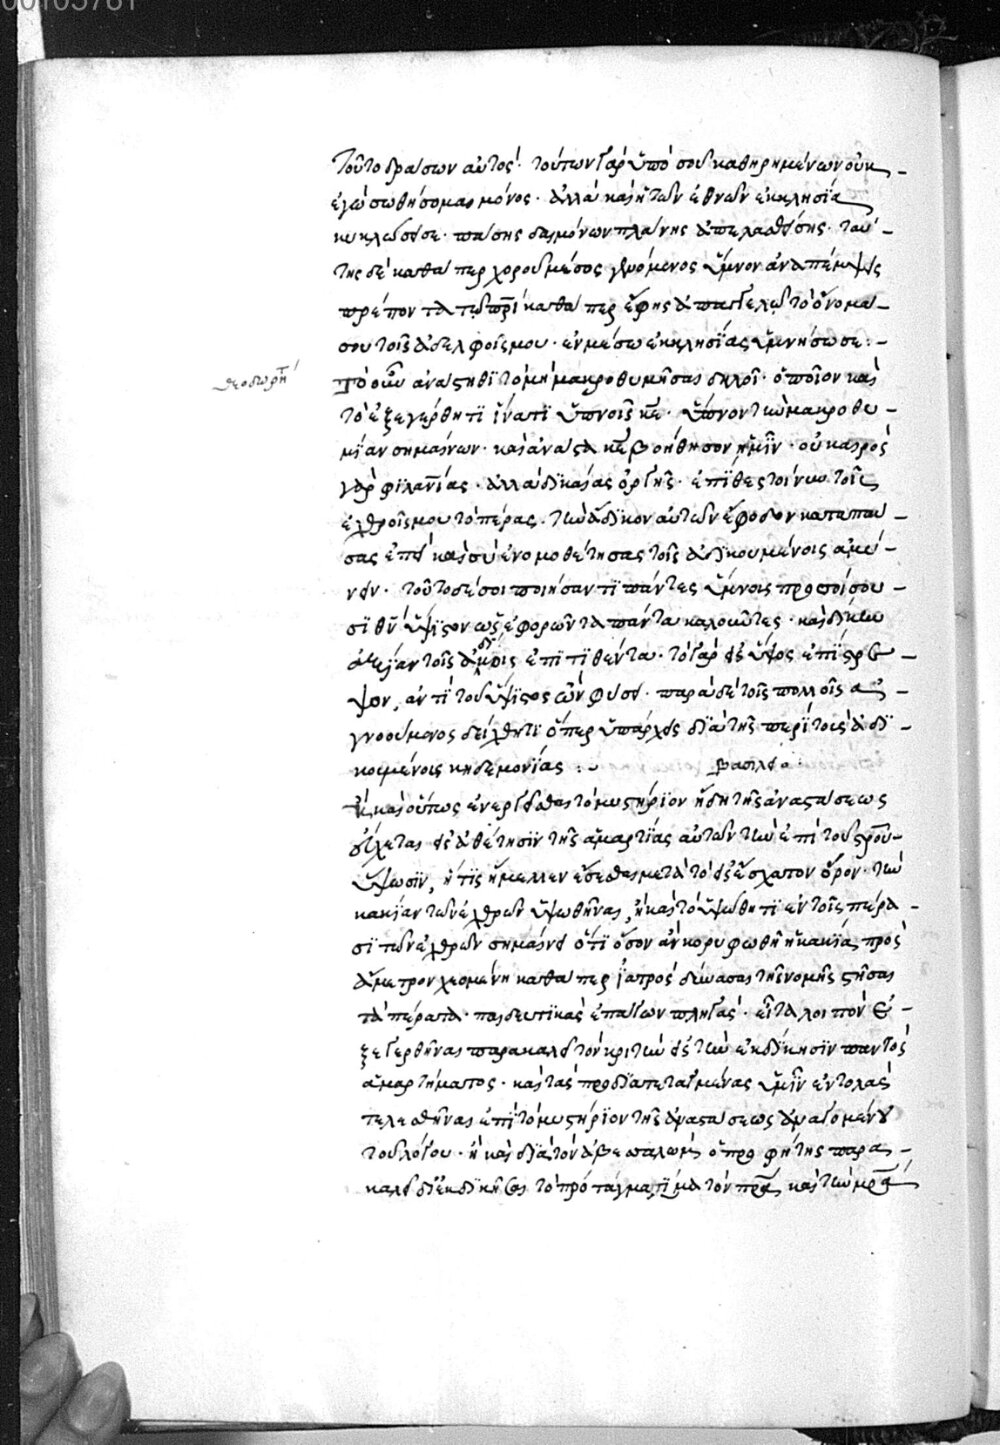 00103781
τοῦτο δράσων αὐτός· τούτων γὰρ ὑπὸ σοῦ καθηρημένων οὐκ
ἐγὼ σωθήσομαι μόνος· ἀλλὰ καὶ ἡ τῶν ἐθνῶν ἐκκλησία
κυκλώσει σε· πάσης δαιμόνων πλάνης ἀπελαθείσης· ταύ-
της δὲ καθάπερ χοροῦ μέσος γενόμενος ὕμνον ἀναπέμψεις
πρέποντα τῷ πρὶ καθάπερ ἔφης ἀπαγγελῶ τὸ ὄνομα
σου τοῖς ἀδελφοῖς μου· ἐν μέσω ἐκκλησίας ὑμνήσω σε:-
θεοδωρήτ
Τὸ οὖν ἀνάστηθϊ τὸ μὴ μακροθυμῆσαι δηλοῖ· ὁποῖον καὶ
τὸ ἐξεγέρθητϊ ἵνατϊ ὑπνοῖς κε· ὕπνον τὴν μακροθυ-
μίαν σημαίνων· καὶ ἀνάστα κε βοήθησον ἡμῖν· οὐ καιρὸς
γὰρ φϊλανίας· ἀλλὰ δϊκαίας ὀργῆς· ἐπίθες τοίνυν τοῖς
ἐχθροῖς μου τὸ πέρας· τὴν ἄδϊκον αὐτῶν ἔφοδον καταπαύ-
σας ἐπεὶ καὶ σὺ ἐνομοθέτησας τοῖς ἀδϊκουμένοις ἀμύ-
νειν· τοῦτο δέ σοι ποιήσαντϊ πάντες ὕμνοις προσοίσου-
σϊ θν ὕψϊστον ὡς ἐφορῶντα πάντα καλοῦντες· καὶ δίκην
ἀξίαν τοῖς ἀδίκοις ἐπιτιθέντα· τὸ γὰρ εἰς ὕψος ἐπίστρε-
ψον, ἀντὶ τοῦ ὕψϊστος ὢν φύσει· παρὰ δὲ τοῖς πολλοῖς ἀ-
γνοούμενος δείχθητϊ ὅπερ ὑπάρχεις δϊὰ τῆς περὶ τοὺς ἀδϊ-
κουμένοις κηδεμονίας:- βασιλεί
Ἢ καὶ οὕπως ἐνεργεῖσθαι τὸ μυστήριον ἤδη τῆς ἀναστάσεως
εὔχεται εἰς ἀθέτησϊν τῆς ἁμαρτίας αὐτῶν τὴν ἐπὶ τοῦ σροῦ
ὕψωσϊν, ἥτϊς ἤμελλεν ἔσεσθαι μετὰ τὸ εἰς ἔσχατον ὅρον τὴν
κακίαν τῶν ἐχθρῶν ὑψωθῆναι, ἢ καὶ τὸ ὑψώθητϊ ἐν τοῖς πέρα-
σϊ τῶν ἐχθρῶν σημαίνει ὅτϊ ὅσον ἂν κορυφωθῆ ἡ κακία, πρὸς
ἄμετρον χεομένη καθάπερ ἰατρὸς δύνασαι τῆς νομῆς στῆσαι
τὰ πέρατα· παιδευτικὰς ἐπάγων πληγάς· εἶτα λοιπὸν ἐ-
ξεγερθῆναι παρακαλεῖ τὸν κριτὴν εἰς τὴν ἐκδίκησϊν παντὸς
ἁμαρτήματος· καὶ τὰς προδϊαπεταγμένας ὑμῖν ἐντολὰς
τελεσθῆναι ἐπὶ τὸ μυστήριον τῆς ἀναστάσεως ἀναγομένου
τοῦ λόγου· ἢ καὶ δϊὰ τὸν ἀβεσαλὼμ ὁ προφήτης παρα-
καλεῖ δϊεκδϊκῆσαι τὸ πρόσταγμα, τίμα τὸν πρα καὶ τὴν μρα